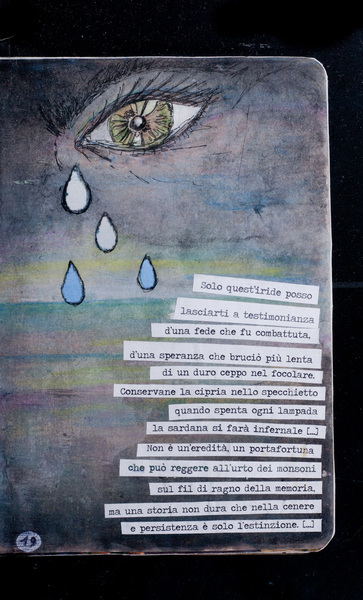 Solo quest'iride posso
lasciarti a testimonianza
d'una fede che fu combattuta,
d'una speranza che bruciò più lenta
di un duro ceppo nel focolare.
Conservane la cipria nello specchietto
quando spenta ogni lampada
la sardana si farà infernale [...]
Non è un'eredità, un portafortuna
che può reggere all'urto dei monsoni
sul fil di ragno della memoria,
ma una storia non dura che nella cenere
e persistenza è solo l'estinzione. [...]
19